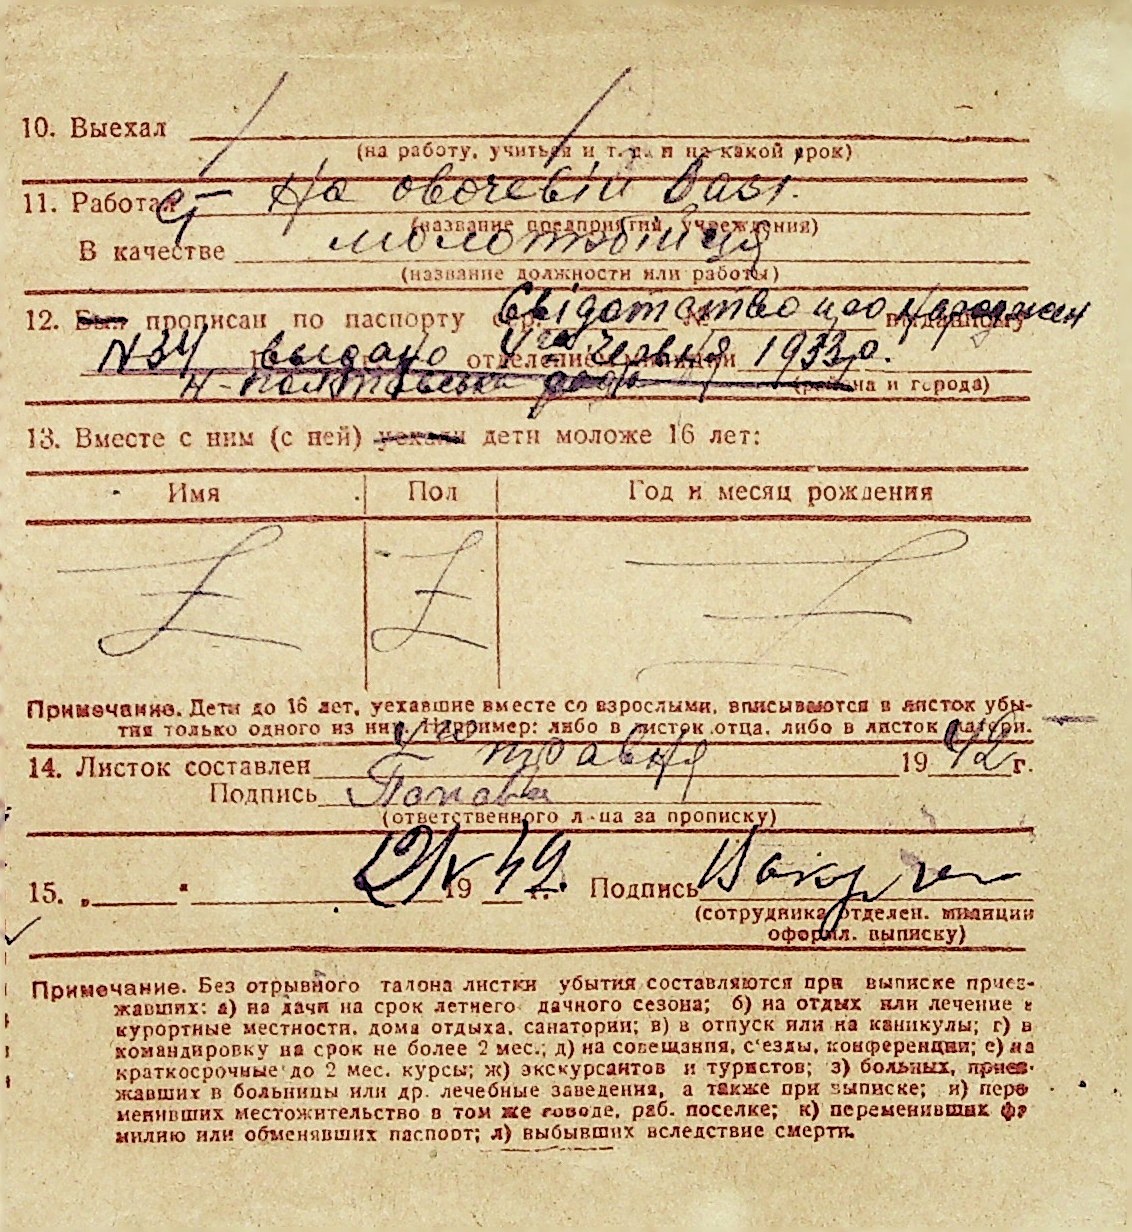 10. Выехал
(на работу, учиться и т. д. и на какой срок)
11. Работал На овочевій базі.
(название предприятия, учреждения)
В качестве молотобійця
(название должности или работы)
12. Был прописан по паспорту Свідотство про народжен выданному
N34 выдано отделением милиции 4го червня 1933 р.
(района и города)
13. Вместе с ним (с ней) уехали дети моложе 16 лет:
Имя Пол Год и месяц рождения
Z Z Z
Примечание. Дети до 16 лет, уехавшие вместе со взрослыми, вписываются в листок убы-
тия только одного из них. Например: либо в листок отца, либо в листок матери.
14. Листок составлен травня 1942 г.
Подпись
(ответственного лица за прописку)
15. „ " 19 42 г. Подпись
(сотрудника отделен. милиции
оформл. выписку)
Примечание. Без отрывного талона листки убытия составляются при выписке приез-
жавших: а) на дачи на срок летнего дачного сезона; б) на отдых или лечение в
курортные местности, дома отдыха, санатории; в) в отпуск или на каникулы; г) в
командировку на срок не более 2 мес.; д) на совещания, с'езды, конференции; е) на
краткосрочные до 2 мес. курсы; ж) экскурсантов и туристов; з) больных, приез-
жавших в больницы или др. лечебные заведения, а также при выписке; и) пере
менивших местожительство в том же городе, раб. поселке; к) переменивших фа
милию или обменявших паспорт; л) выбывших вследствие смерти.